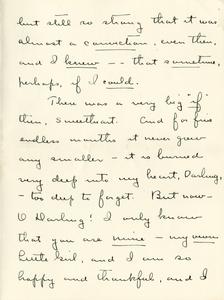 but still so strong that it was
almost a conviction, even then,
and I knew -- that sometime,
perhaps, if I could.
There was a very big "if"
then, sweetheart. And for
endless months it never grew
any smaller - it is burned
very deep into my heart, Darling,
- too deep to forget. But now -
O Darling! I only know
that you are mine - my own
little girl, and I am so
happy and thankful, and I